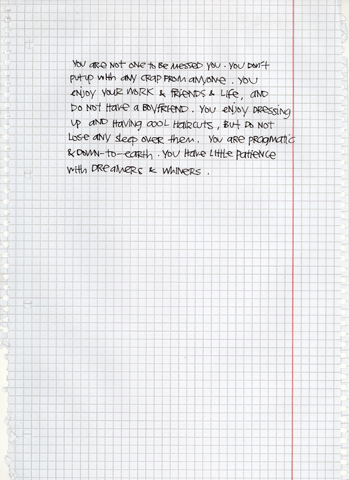 YOU ARE NOT ONE TO BE MESSED YOU. YOU DON'T
PUT UP WITH ANY CRAP FROM ANYONE. YOU
ENJOY YOUR WORK & FRIENDS & LIFE, AND
DO NOT HAVE A BOYFRIEND. YOU ENJOY DRESSING
UP AND HAVING COOL HAIRCUTS, BUT DO NOT
LOSE ANY SLEEP OVER THEM. YOU ARE PRAGMATIC
& DOWN-TO-EARTH. YOU HAVE LITTLE PATIENCE
WITH DREAMERS & WHINERS.